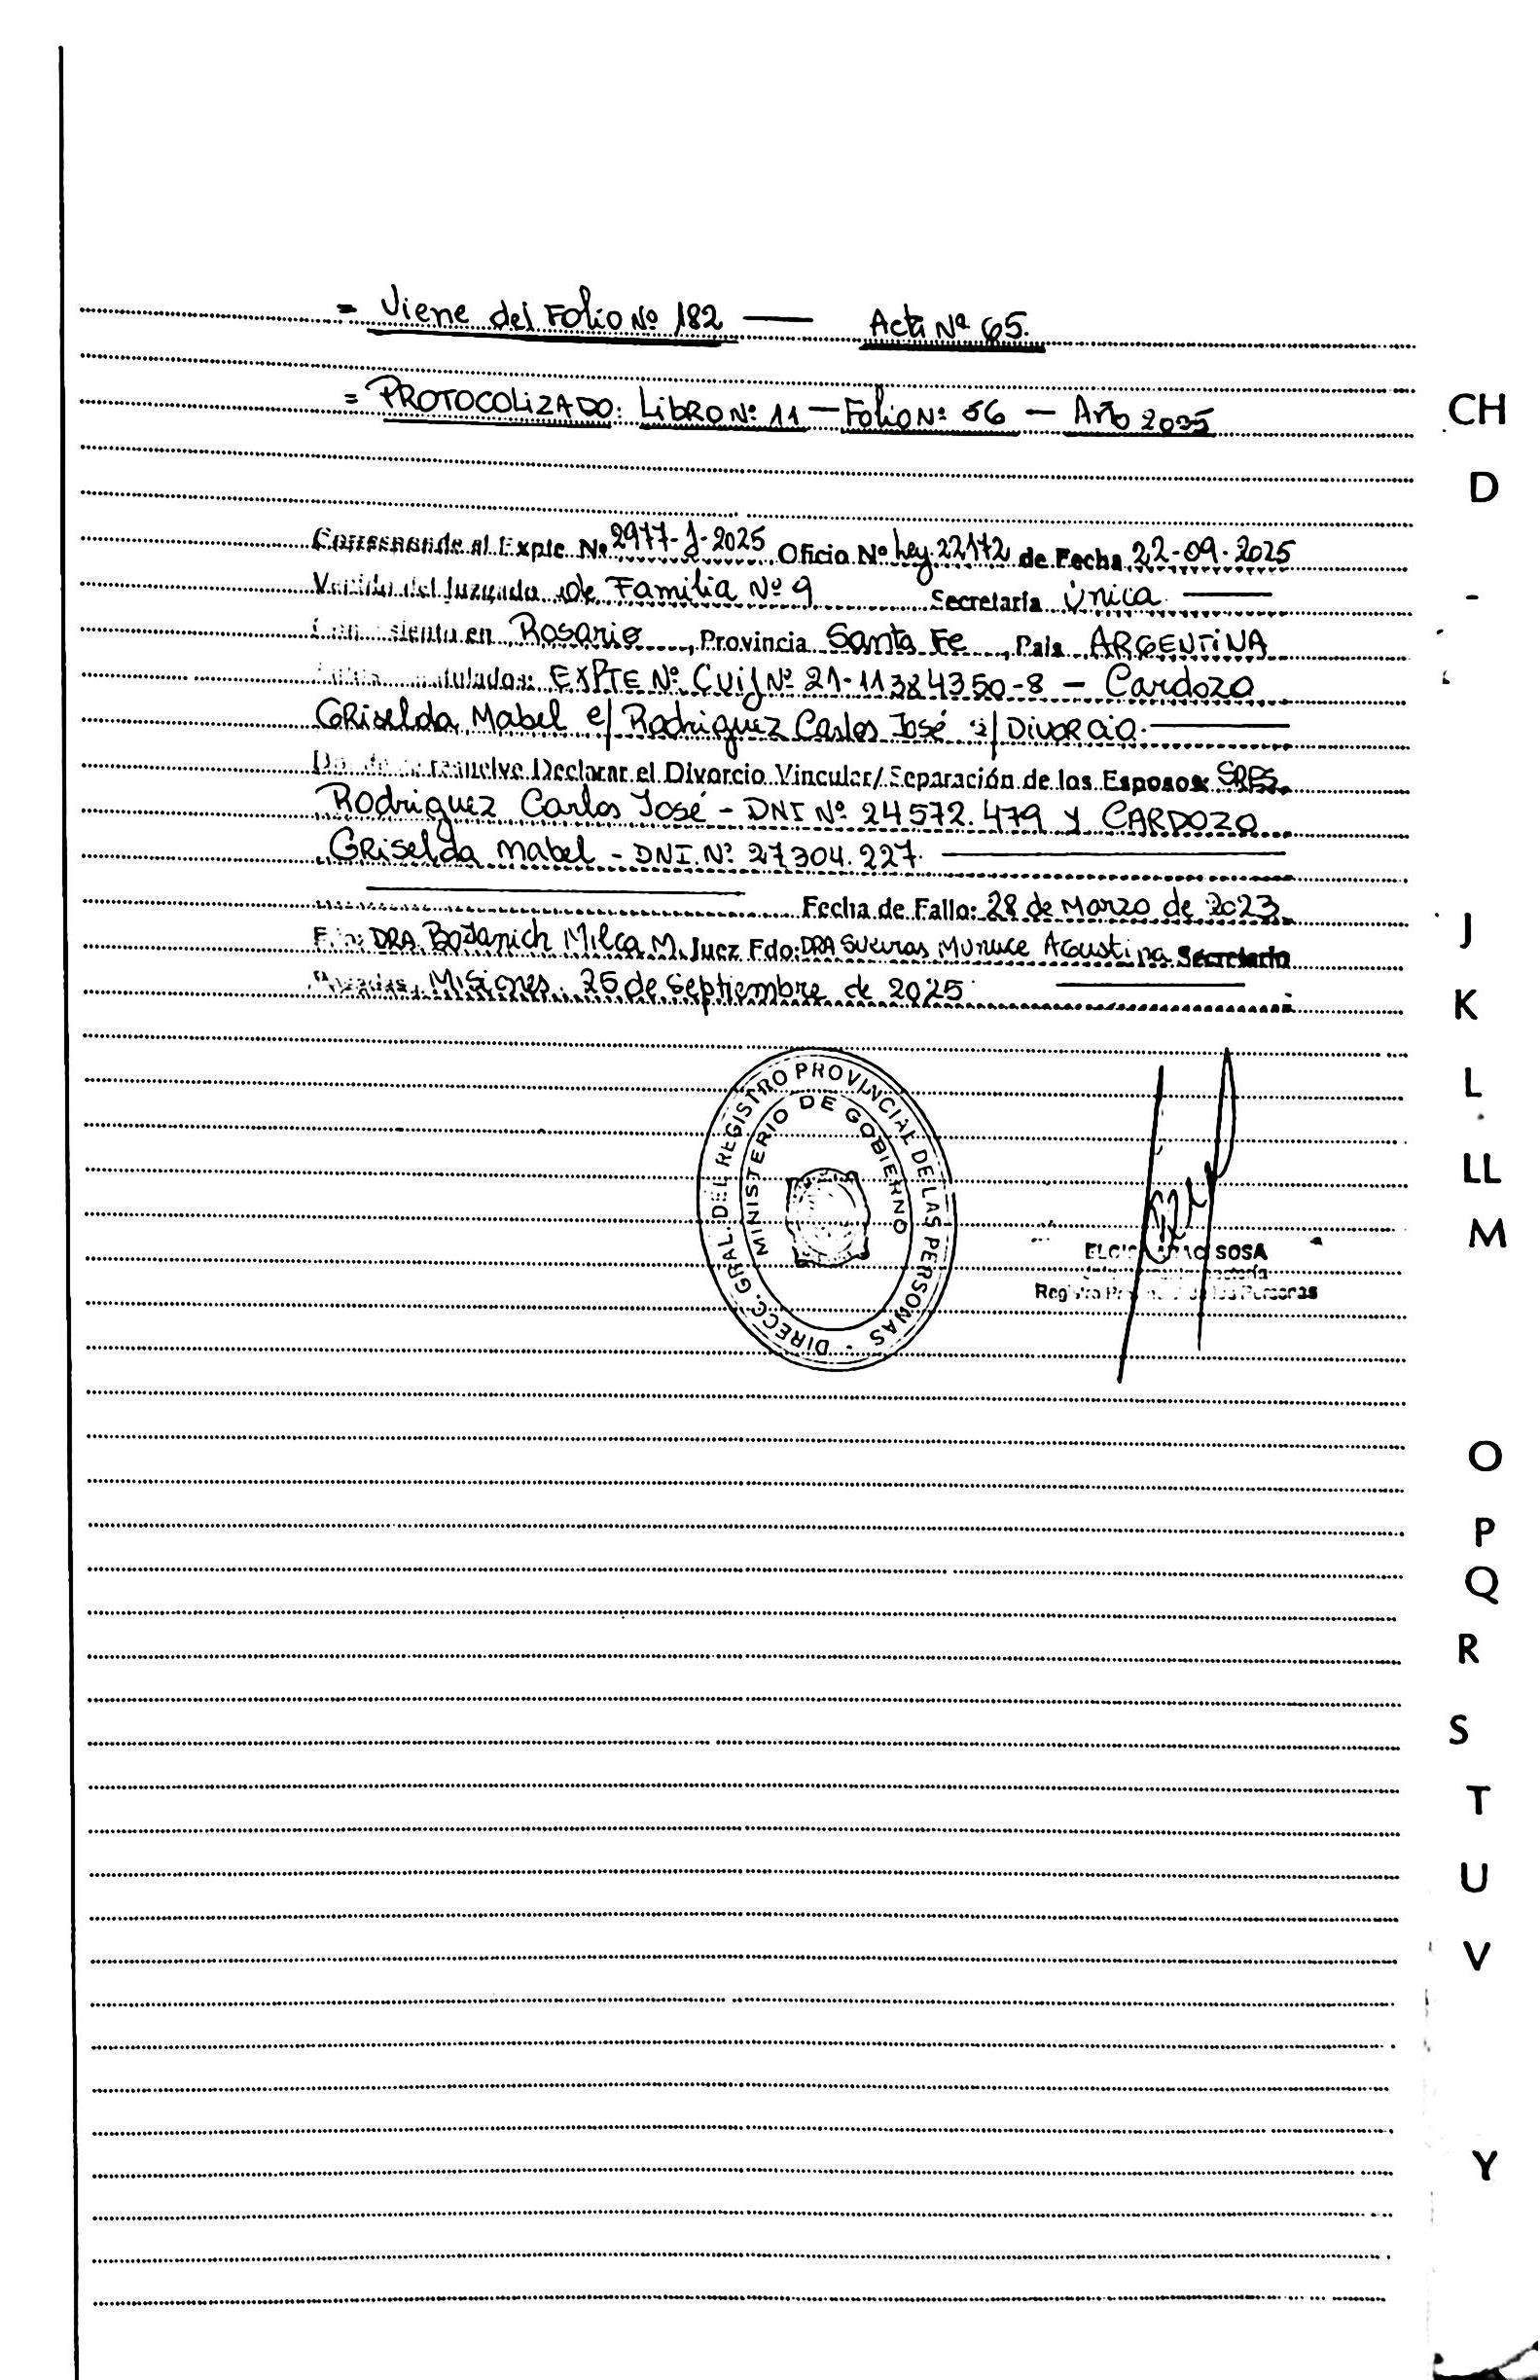 = Viene del Folio Nº 182 — Acta Nº 65.
= PROTOCOLIZADO: LibRO Nº 11 — Folio Nº 56 — Año 2025
CH
D
Corresponde al Expte Nº 2977-J-2025 Oficio Nº Ley 22172 de Fecha 22-09-2025
Venido del Juzgado de Familia Nº 9 Secretaría Única —
Con asiento en Rosario, Provincia Santa Fe, País ARGENTINA
Autos Caratulados: EXPTE Nº Cuij Nº 21-11384350-8 — Cardozo
GRiselda Mabel c/ Rodriguez Carlos José s/ DivoRcio. —
Donde se resuelve Declarar el Divorcio Vincular/Separación de los Esposos: SRES.
Rodriguez Carlos José - DNI Nº 24572.479 y CARDOZO
GRiselda Mabel - DNI. Nº 27304.227. —
Fecha de Fallo: 28 de Marzo de 2023.
Fdo: DRA. Milca M. Juez Fdo: DRA Agustina Secretario
Posadas, Misiones, 25 de Septiembre de 2025
J
K
L
LL
M
DIRECC. GRAL. DEL REGISTRO PROVINCIAL DE LAS PERSONAS
MINISTERIO DE GOBIERNO
SOSA
Registro Provincial de las Personas
O
P
Q
R
S
T
U
V
Y